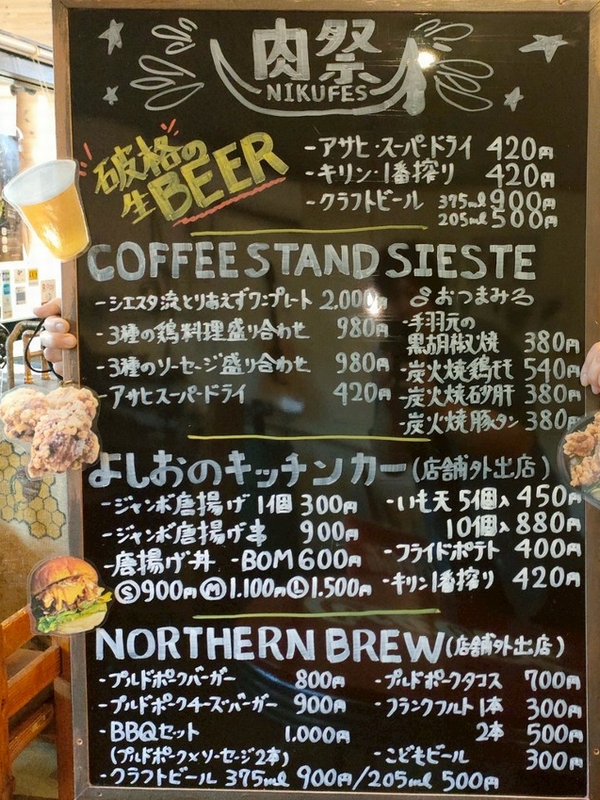 肉祭
NIKUFES
破格の
生BEER
-アサヒ・スーパードライ 420円
-キリン・1番搾り 420円
-クラフトビール 375ml 900円
205ml 500円
COFFEE STAND SIESTE
-シエスタ流とりあえずワンプレート 2,000円
-3種の鶏料理盛り合わせ 980円
-3種のソーセージ盛り合わせ 980円
-アサヒスーパードライ 420円
おつまみる
-手羽元の
黒胡椒焼 380円
-炭火焼鶏もも 540円
-炭火焼砂肝 380円
-炭火焼豚タン 380円
よしおのキッチンカー(店舗外出店)
-ジャンボ唐揚げ 1個 300円
-ジャンボ唐揚げ串 900円
-唐揚げ丼 -BOM 600円
Ⓢ900円 Ⓜ1.100円 Ⓛ1.500円
-いも天 5個入 450円
10個入 880円
-フライドポテト 400円
-キリン1番搾り 420円
NORTHERN BREW(店舗外出店)
-プルドポークバーガー 800円
-プルドポークチーズバーガー 900円
-BBQセット 1.000円
(プルドポーク×ソーセージ2本)
-プルドポークタコス 700円
-フランクフルト 1本 300円
2本 500円
-こどもビール 300円
-クラフトビール 375ml 900円/205ml 500円